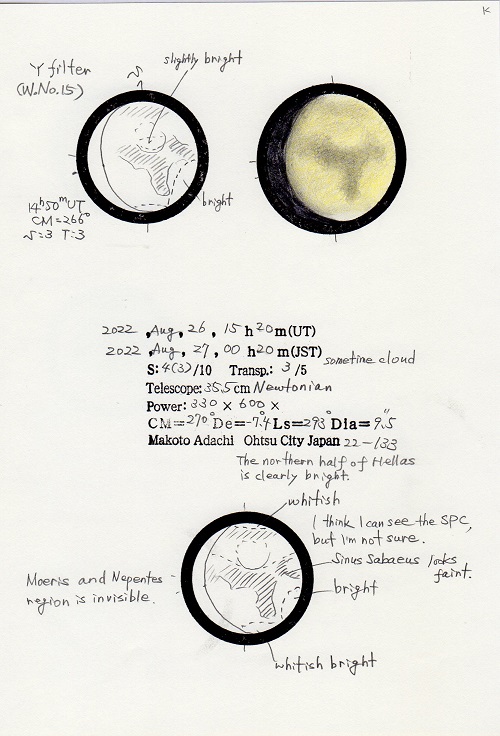 K
slightly bright
Y filter
(W.No.15)
bright
14h50mUT
CM=266°
S=3 T=3
2022 ,Aug, 26, 15 h 20 m(UT)
2022 ,Aug, 27, 00 h 20 m(JST)
sometime cloud
S: 4(3)/10 Transp.: 3 /5
Telescope: 35.5 cm Newtonian
Power: 330 × 600 ×
CM=270° De=-7.4° Ls=293° Dia=9.5"
Makoto Adachi Ohtsu City Japan 22-133
The northern half of Hellas
is clearly bright.
whitish
I think I can see the SPC,
but I'm not sure.
Sinus Sabaeus looks
faint.
Moeris and Nepentes
region is invisible.
bright
whitish bright